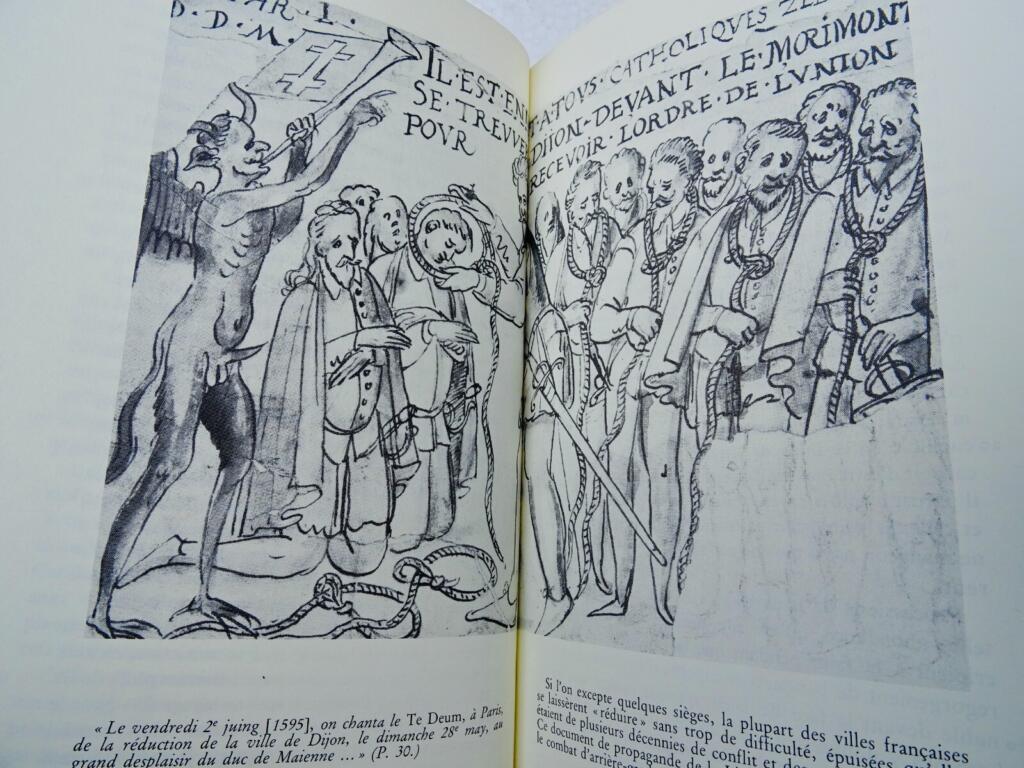 PAR L.
D. D. M.
IL·EST·EN
SE·TREVVE
POVR
T·A·TOVS·CATHOLIQVES
DIION·DEVANT·LE·MORIMONT
RECEVOIR·LORDRE·DE·LVNION
« Le vendredi 2e juing [1595], on chanta le Te Deum, à Paris,
de la réduction de la ville de Dijon, le dimanche 28e may, au
grand desplaisir du duc de Maienne ... » (P. 30.)
Si l'on excepte quelques sièges, la plupart des villes françaises
se laissèrent « réduire » sans trop de difficulté, épuisées qu'elles
étaient de plusieurs décennies de conflit et
Ce document de propagande de la
le combat